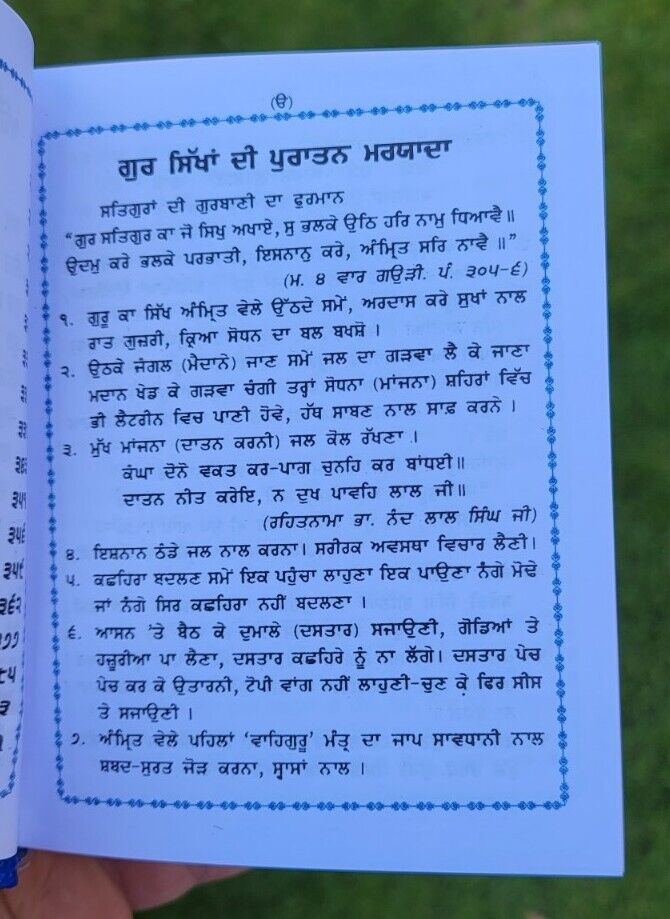 (ੳ)
ਗੁਰ ਸਿੱਖਾਂ ਦੀ ਪੁਰਾਤਨ ਮਰਯਾਦਾ
ਸਤਿਗੁਰਾਂ ਦੀ ਗੁਰਬਾਣੀ ਦਾ ਫੁਰਮਾਨ
“ਗੁਰ ਸਤਿਗੁਰ ਕਾ ਜੋ ਸਿਖੁ ਅਖਾਏ, ਸੁ ਭਲਕੇ ਉਠਿ ਹਰਿ ਨਾਮੁ ਧਿਆਵੈ॥
ਉਦਮੁ ਕਰੇ ਭਲਕੇ ਪਰਭਾਤੀ, ਇਸਨਾਨੁ ਕਰੇ, ਅੰਮ੍ਰਿਤ ਸਰਿ ਨਾਵੈ ॥”
(ਮ. ੪ ਵਾਰ ਗਉੜੀ. ਪੰ. ੩੦੫-੬)
੧. ਗੁਰੂ ਕਾ ਸਿੱਖ ਅੰਮ੍ਰਿਤ ਵੇਲੇ ਉੱਠਦੇ ਸਮੇਂ, ਅਰਦਾਸ ਕਰੇ ਸੁਖਾਂ ਨਾਲ
ਰਾਤ ਗੁਜ਼ਰੀ, ਕ੍ਰਿਆ ਸੋਧਨ ਦਾ ਬਲ ਬਖਸ਼ੋ ।
੨. ਉਠਕੇ ਜੰਗਲ (ਮੈਦਾਨੇ) ਜਾਣ ਸਮੇਂ ਜਲ ਦਾ ਗੜਵਾ ਲੈ ਕੇ ਜਾਣਾ
ਮਦਾਨ ਖੇਡ ਕੇ ਗੜਵਾ ਚੰਗੀ ਤਰ੍ਹਾਂ ਸੋਧਨਾ (ਮਾਂਜਨਾ) ਸ਼ਹਿਰਾਂ ਵਿੱਚ
ਭੀ ਲੈਟਰੀਨ ਵਿਚ ਪਾਣੀ ਹੋਵੇ, ਹੱਥ ਸਾਬਣ ਨਾਲ ਸਾਫ਼ ਕਰਨੇ ।
੩. ਮੁੱਖ ਮਾਂਜਨਾ (ਦਾਤਨ ਕਰਨੀ) ਜਲ ਕੋਲ ਰੱਖਣਾ ।
ਕੰਘਾ ਦੋਨੋ ਵਕਤ ਕਰ-ਪਾਗ ਚੁਨਹਿ ਕਰ ਬਾਂਧਈ॥
ਦਾਤਨ ਨੀਤ ਕਰੇਇ, ਨ ਦੁਖ ਪਾਵਹਿ ਲਾਲ ਜੀ॥
(ਰਹਿਤਨਾਮਾ ਭਾ. ਨੰਦ ਲਾਲ ਸਿੰਘ ਜੀ)
੪. ਇਸ਼ਨਾਨ ਠੰਡੇ ਜਲ ਨਾਲ ਕਰਨਾ। ਸਰੀਰਕ ਅਵਸਥਾ ਵਿਚਾਰ ਲੈਣੀ।
੫. ਕਛਹਿਰਾ ਬਦਲਣ ਸਮੇਂ ਇਕ ਪਹੁੰਚਾ ਲਾਹੁਣਾ ਇਕ ਪਾਉਣਾ ਨੰਗੇ ਮੋਢੇ
ਜਾਂ ਨੰਗੇ ਸਿਰ ਕਛਹਿਰਾ ਨਹੀਂ ਬਦਲਣਾ ।
੬. ਆਸਨ ’ਤੇ ਬੈਠ ਕੇ ਦੁਮਾਲੇ (ਦਸਤਾਰ) ਸਜਾਉਣੀ, ਗੋਡਿਆਂ ਤੇ
ਹਜ਼ੂਰੀਆ ਪਾ ਲੈਣਾ, ਦਸਤਾਰ ਕਛਹਿਰੇ ਨੂੰ ਨਾ ਲੱਗੇ। ਦਸਤਾਰ ਪੇਚ
ਪੇਚ ਕਰ ਕੇ ਉਤਾਰਨੀ, ਟੋਪੀ ਵਾਂਗ ਨਹੀਂ ਲਾਹੁਣੀ-ਚੁਣ ਕੇ ਫਿਰ ਸੀਸ
ਤੇ ਸਜਾਉਣੀ ।
੭. ਅੰਮ੍ਰਿਤ ਵੇਲੇ ਪਹਿਲਾਂ ‘ਵਾਹਿਗੁਰੂ’ ਮੰਤ੍ਰ ਦਾ ਜਾਪ ਸਾਵਧਾਨੀ ਨਾਲ
ਸ਼ਬਦ-ਸੁਰਤ ਜੋੜ ਕਰਨਾ, ਸ੍ਵਾਸਾਂ ਨਾਲ ।